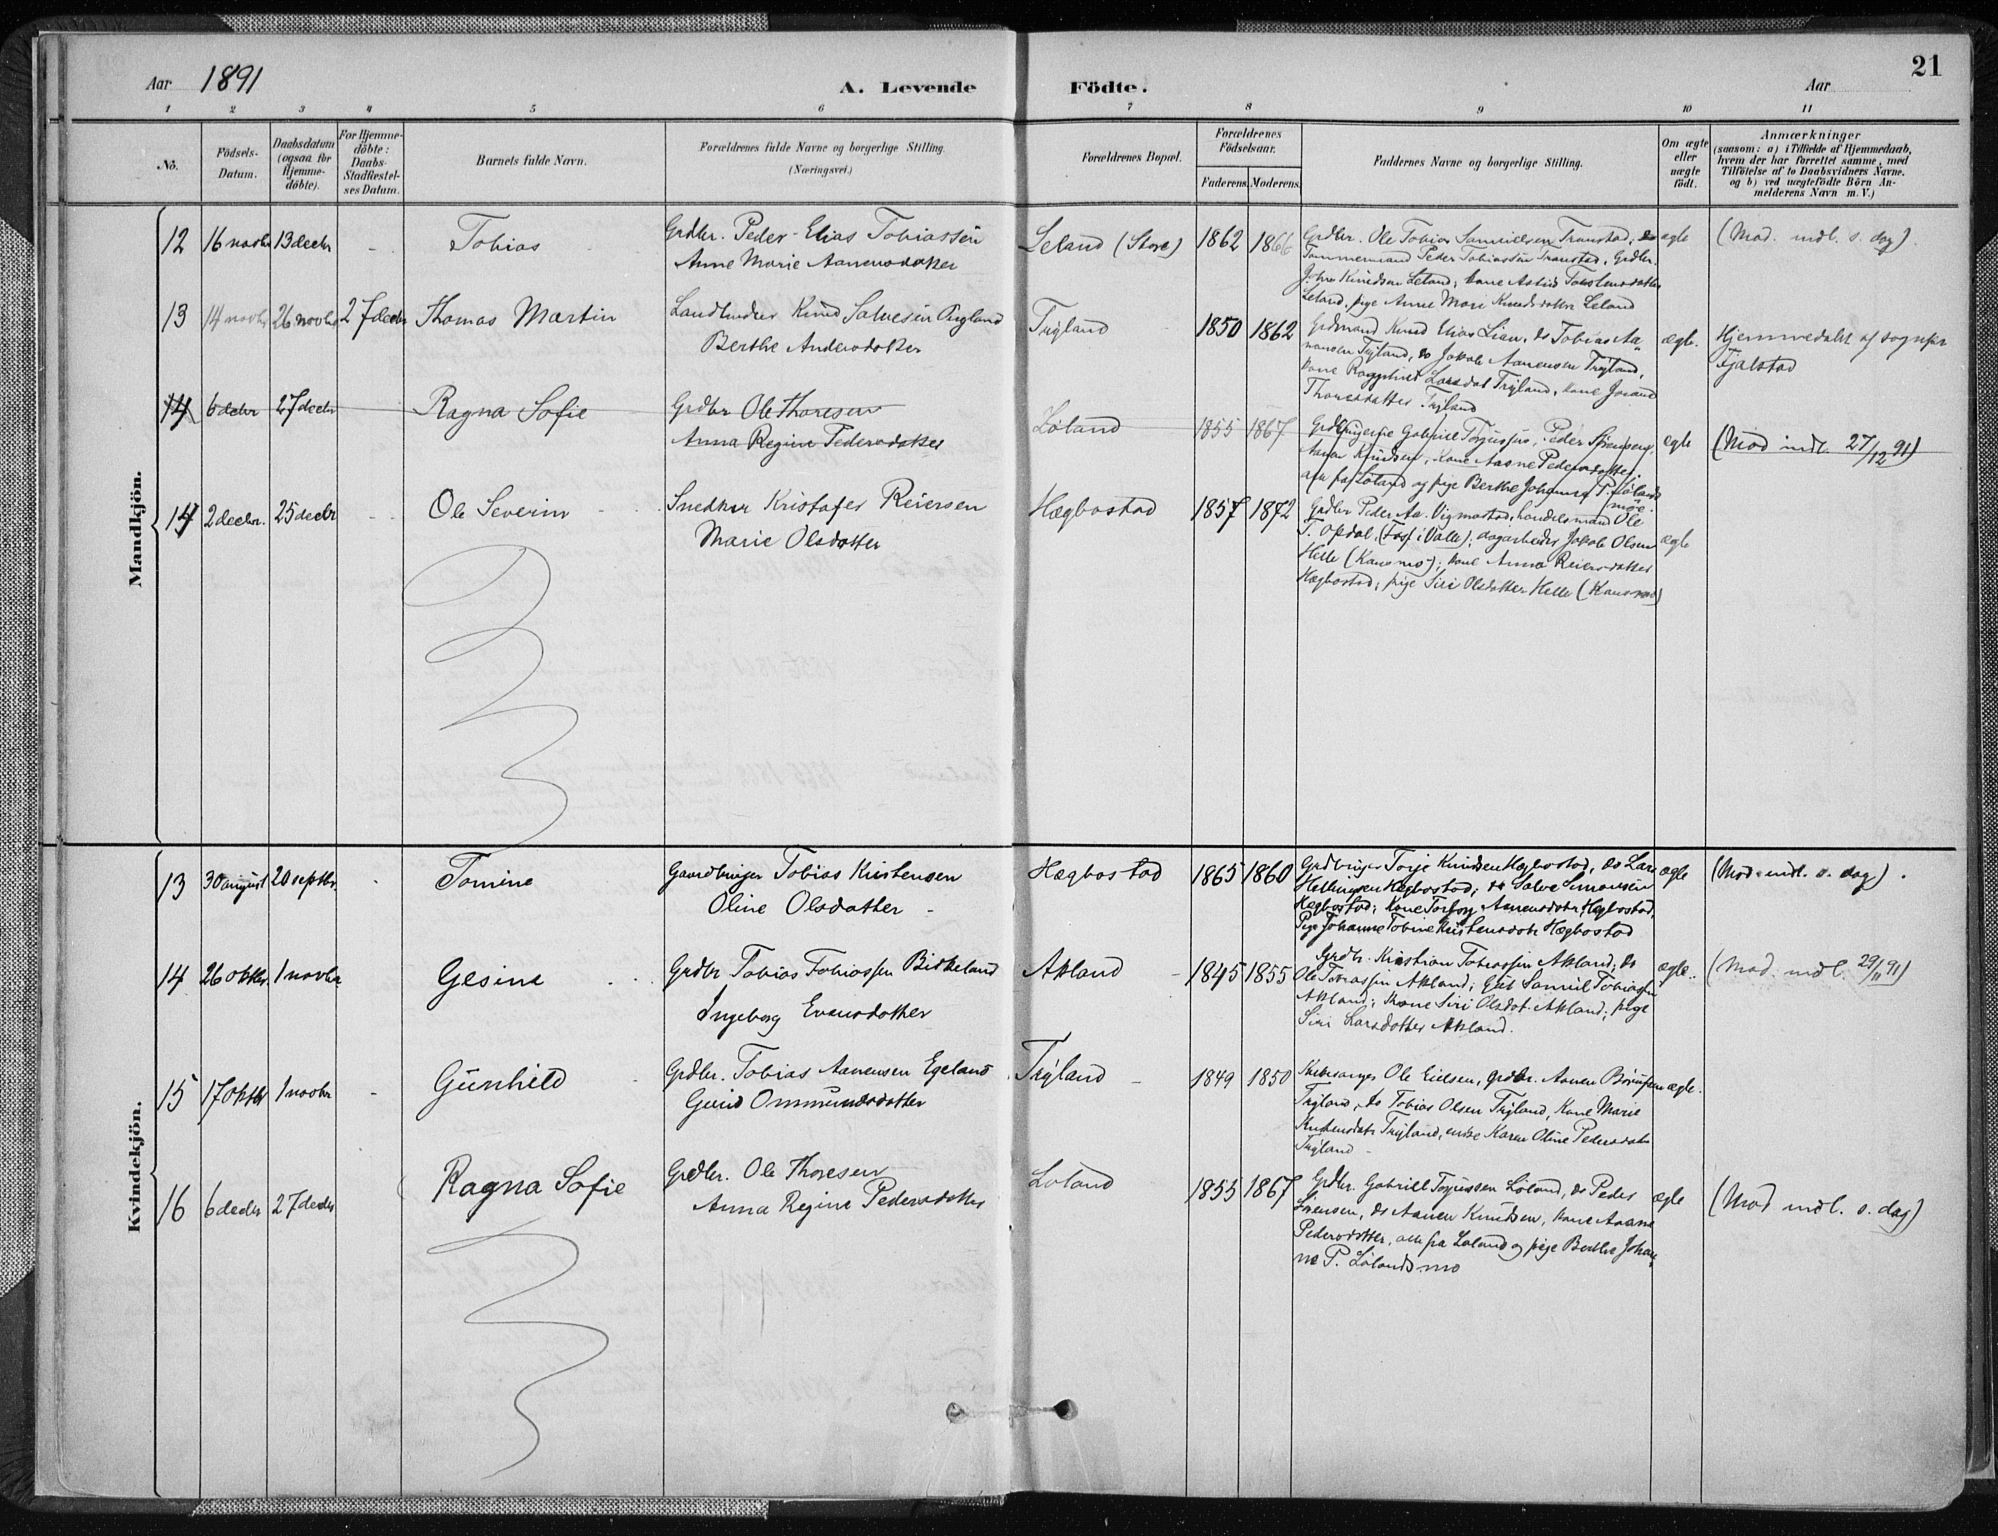 21
Aar 1891
A. Levende Födte.
Aar
1 2 3 4 5 6 7 8 9 10 11
Nö.
Födsels-Datum.
Daabsdatum (ogsaa for Hjemme-döbte).
For Hjemme-döbte: Daabs-Stadfæstel-ses Datum.
Barnets fulde Navn.
Forældrenes fulde Navne og borgerlige Stilling.
(Næringsvei.)
Forældrenes Bopæl.
Forældrenes Födselsaar.
Faderens. Moderens.
Faddernes Navne og borgerlige Stilling.
Om ægte eller uægte födt.
Anmærkninger
(saasom: a) i Tilfælde af Hjemmedaab, hvem der har forrettet samme, med Tilföielse af to Daabsvidners Navne, og b) ved uægtefödte Börn An-melderens Navn m. V.)
Mandkjön.
12 16 novbr 13 decbr - Tobias
Grdbr. Peder Elias Tobiassen
Anne Marie Aanensdatter
Leland (Store) 1862 1866
Grdbr. Ole Tobias Samuelsen Transtad, do
Tømmermand Peder Tobiassen Transtad, Grdbr.
John Knudsen Leland; kone Astrid
Leland, pige Anne Mari Knudsdatter Leland
ægte (Mod. indl. s. dag).
13 14 novbr 26 novbr 27 decbr Thomas Martin
Knud Salvesen
Berthe Andersdatter
Trÿland 1850 1862
Knud Elias Lian, do Tobias Aa-
nensen Trÿland, do Jakob Aanensen Trÿland,
kone Larsdat Trÿland, kone
Thoresdatter Trÿland
ægte. Hjemmedøbt af
Fjalstad
14 6 decbr 27 decbr Ragna Sofie
Grdbr Ole Thoresen
Anna Regine Pedersdatter
Løland 1855 1867
Gabriel Peder
Aanen Knudsen, kone Aasne Pedersdatter
alle fra Løland og pige Berthe Johanna P. Lølands
moe.
ægte (Mod indl. 27/12 91)
14 2 decbr. 25 decbr - Ole Severin
Snedker Kristofer Reiersen
Marie Olsdatter
Hægbostad 1857 1872
Grdbr Peder Aa. Vigmostad, handelsmand Ole
T. Opdal, (Foss i Valle); dagarbeider Jakob Olsen
Helle (kone Anna Reiersdatter
Hægbostad; pige Siri Olsdatter Helle
ægte
Kvindekjön.
13 30 august 20 septbr. - Tomine
Gaardbruger Tobias Kristensen
Oline Olsdatter -
Hægbostad 1865 1860
Grdbruger Torje Knudsen Hægbostad, do Lars
Hægbostad; do Salve Simonsen
Hægbostad; Kone Torborg Aanensdatr Hægbostad,
Pige Johanne Tobine Kristensdatr Hægbostad
ægte (Mod. indl. s. dag).
14 26 oktbr. 1 novbr Gesine
Grdbr Tobias Tobiassen Birkeland
Ingeborg Evensdatter
Akland 1845 1855
Grdbr. Kristian Tobiassen Akland; do
Ole Tobiassen Akland; Gut Samuel Tobiassen
Akland; Kone Siri Olsdat. Akland; pige
Siri Larsdatter Akland.
ægte. (Mod. indl. 29/11 91)
15 17 oktbr 1 novbr - Gunhild
Grdbr. Tobias Aanensen Egeland
Gurid Ommundsdatter
Trÿland 1849 1850
Ole Eielsen, Grdbr. Aanen
Trÿland, do Tobias Olsen Trÿland, Kone Marie
Trÿland, enke Karen Oline Pedersdatr
Trÿland
ægte.
16 6 decbr 27 decbr Ragna Sofie
Grdbr. Ole Thoresen
Anna Regine Pedersdatter
Løland 1855 1867
Grdbr. Gabriel Torjussen Løland, do Peder
Sørensen, do Aanen Knudsen, kone Aasne
Pedersdatter, alle fra Løland og pige Berthe Johan-
ne P. Lølandsmo
ægte (Mod indl. s. dag)